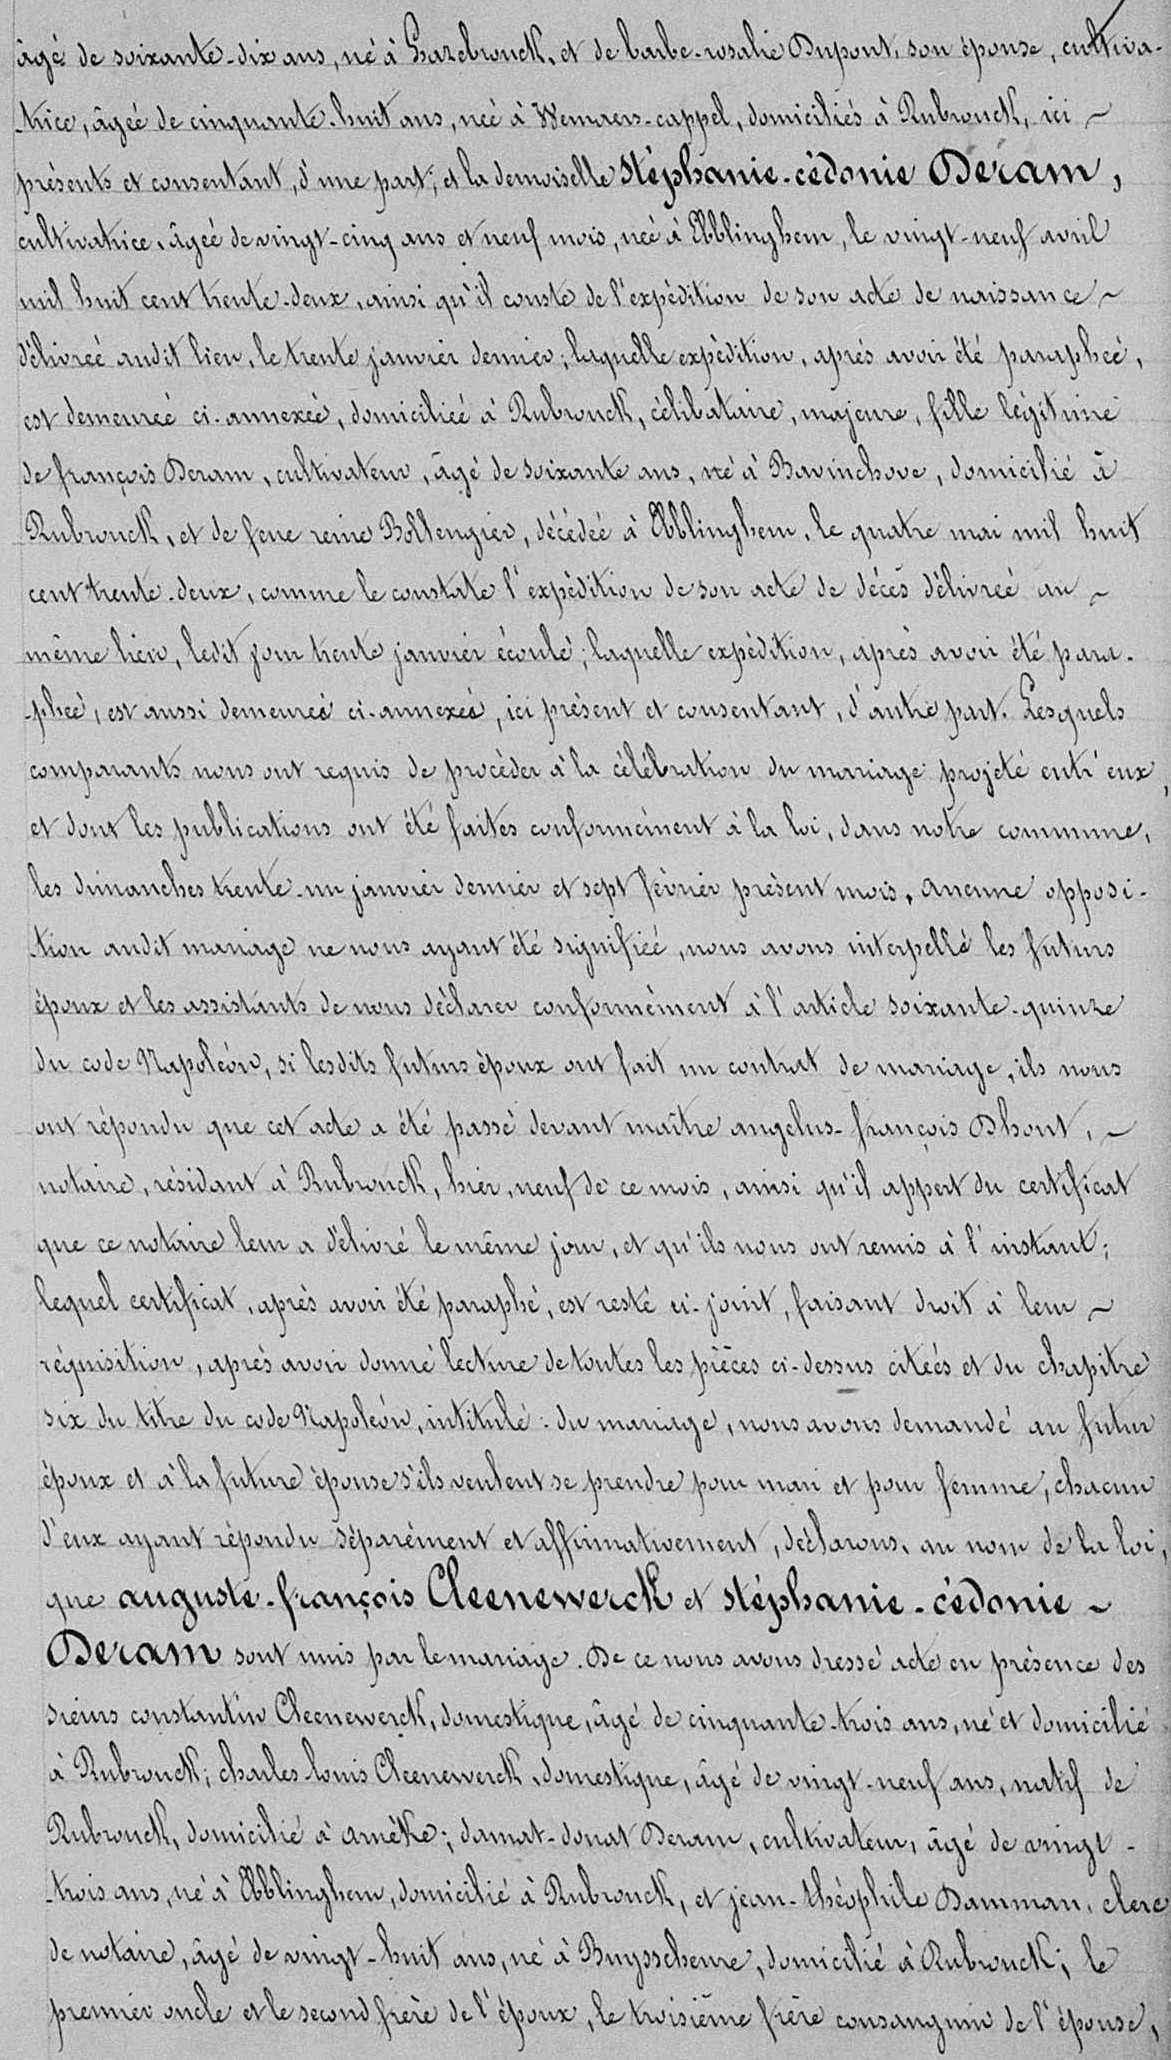 âgé de soixante-dix ans, né à Hazebrouck, et de barbe-rosalie Dupont, son épouse, cultiva-
-trice, âgée de cinquante-huit ans, née à Wemaers-cappel, domiciliés à Rubrouck, ici ~
présents et consentant, d'une part; et la demoiselle Stéphanie-cédonie Deram,
cultivatrice, âgée de vingt-cinq ans et neuf mois, née à Ebblinghem, le vingt-neuf avril
mil huit cent trente-deux, ainsi qu'il conste de l'expédition de son acte de naissance ~
délivrée audit lieu, le trente janvier dernier; laquelle expédition, après avoir été paraphée,
est demeurée ci-annexée, domiciliée à Rubrouck, célibataire, majeure, fille légitime
de françois Deram, cultivateur, âgé de soixante ans, né à Bavinchove, domicilié à
Rubrouck, et de feue reine Bollengier, décédée à Ebblinghem, le quatre mai mil huit
cent trente-deux, comme le constate l'expédition de son acte de décès délivrée au ~
même lieu, ledit jour trente janvier écoulé; laquelle expédition, après avoir été para-
-phée, est aussi demeurée ci-annexée, ici présent et consentant, d'autre part. Lesquels
comparants nous ont requis de procéder à la célébration du mariage projeté entr'eux,
et dont les publications ont été faites conformément à la loi, dans notre commune,
les dimanches trente-un janvier dernier et sept février présent mois. aucune opposi-
-tion audit mariage ne nous ayant été signifiée, nous avons interpellé les futurs
époux et les assistants de nous déclarer conformément à l'article soixante-quinze
du code Napoléon, si lesdits futurs époux ont fait un contrat de mariage, ils nous
ont répondu que cet acte a été passé devant maître angelus-françois Dhont, ~
notaire, résidant à Rubrouck, hier, neuf de ce mois, ainsi qu'il appert du certificat
que ce notaire leur a délivré le même jour, et qu'ils nous ont remis à l'instant;
lequel certificat, après avoir été paraphé, est resté ci-joint, faisant droit à leur ~
réquisition, après avoir donné lecture de toutes les pièces ci-dessus citées et du chapitre
six du titre du code Napoléon, intitulé: du mariage, nous avons demandé au futur
époux et à la future épouse s'ils veulent se prendre pour mari et pour femme, chacun
d'eux ayant répondu séparément et affirmativement, déclarons, au nom de la loi,
que auguste-françois Cleenewerck et stéphanie-cédonie ~
Deram sont unis par le mariage. De ce nous avons dressé acte en présence des
sieurs constantin Cleenewerck, domestique, âgé de cinquante-trois ans, né et domicilié
à Rubrouck; charles-louis Cleenewerck, domestique, âgé de vingt-neuf ans, natif de
Rubrouck, domicilié à arnèke; damat-donat Deram, cultivateur, âgé de vingt-
-trois ans, né à Ebblinghem, domicilié à Rubrouck, et jean-théophile Damman, clerc
de notaire, âgé de vingt-huit ans, né à Buysscheure, domicilié à Rubrouck; le
premier oncle et le second frère de l'époux, le troisième frère consanguin de l'épouse,